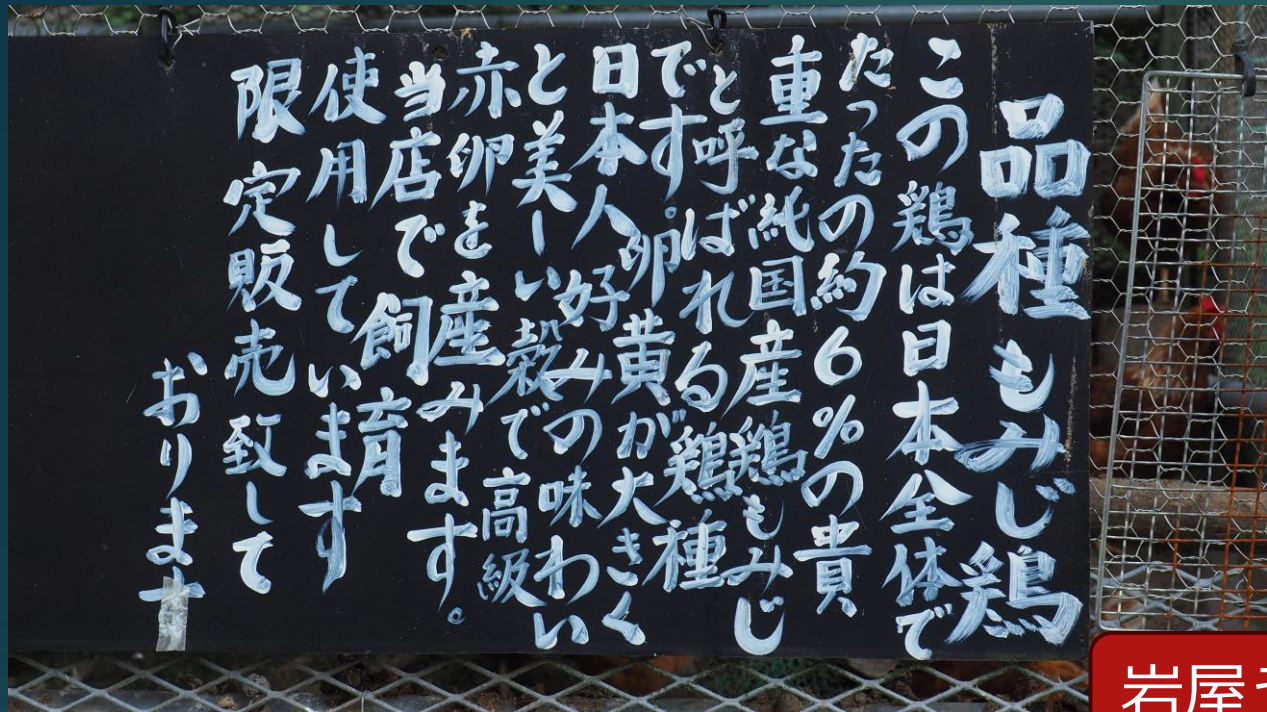 品種 もみじ鶏
この鶏は日本全体で
たったの約6%の貴
重な純国産鶏もみじ
と呼ばれる鶏種
です。卵黄が大きく
日本人好みの味わい
と美しい殻で高級
赤卵を産みます。
当店で飼育
使用しています
限定販売致して
おります
岩屋